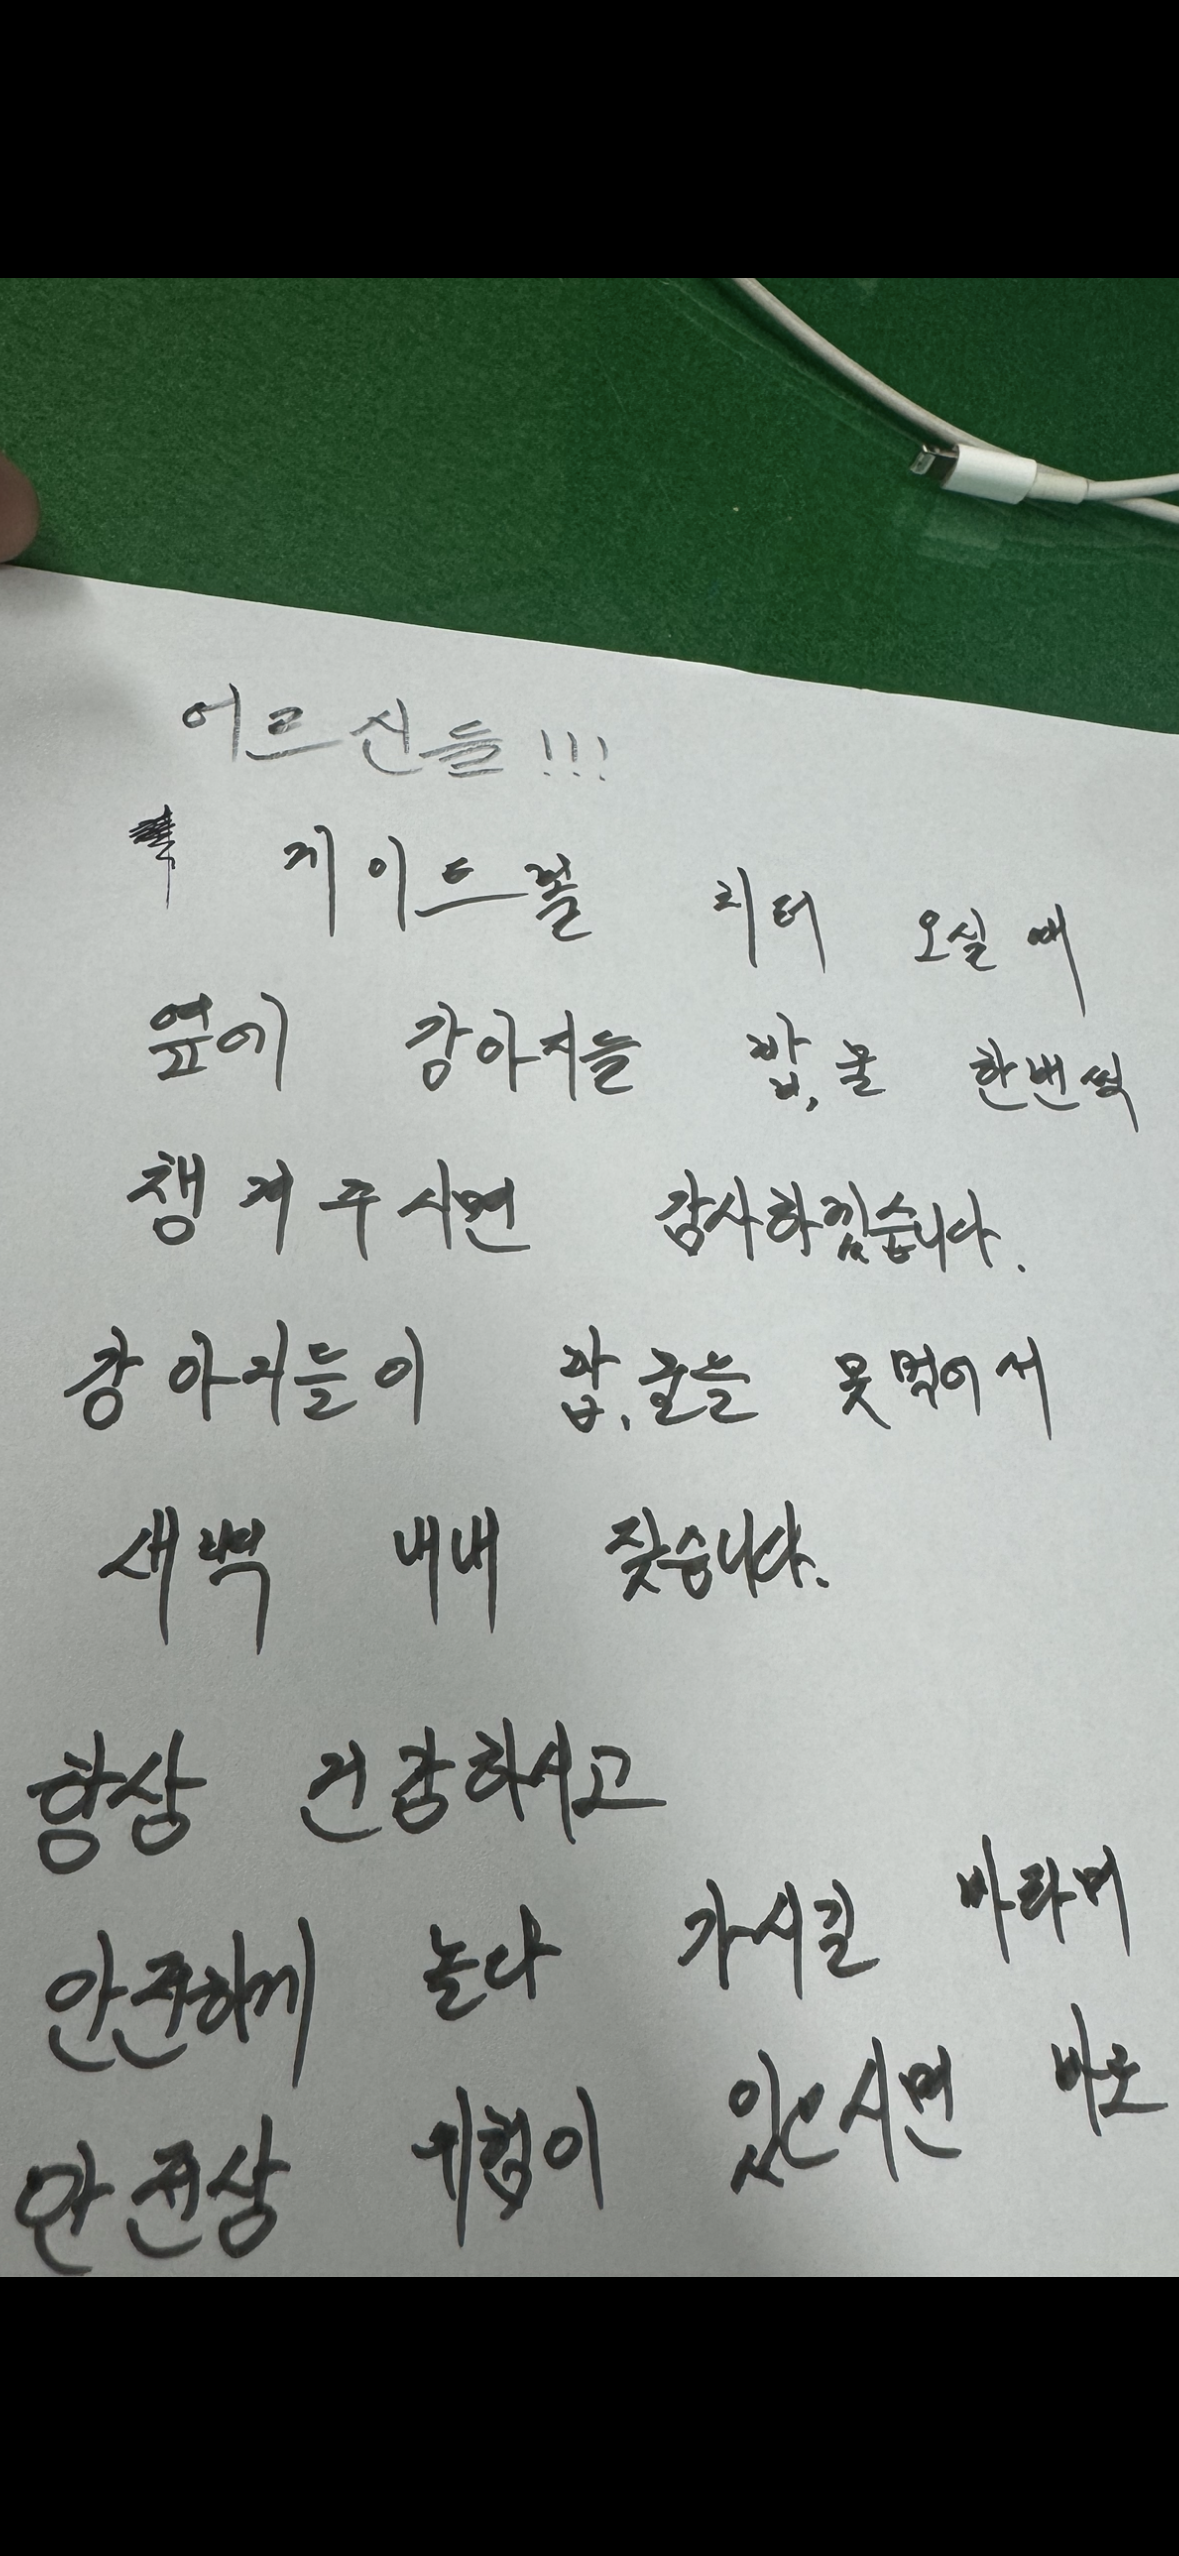 어르신들!!!
게이트볼 치러 오실 때
옆에 강아지들 밥,물 한번씩
챙겨주시면 감사하겠습니다.
강아지들이 밥,물을 못먹어서
새벽 내내 짖습니다.
항상 건강하시고
안전하게 놀다 가시길 바라며
안전상 위험이 있으시면 바로